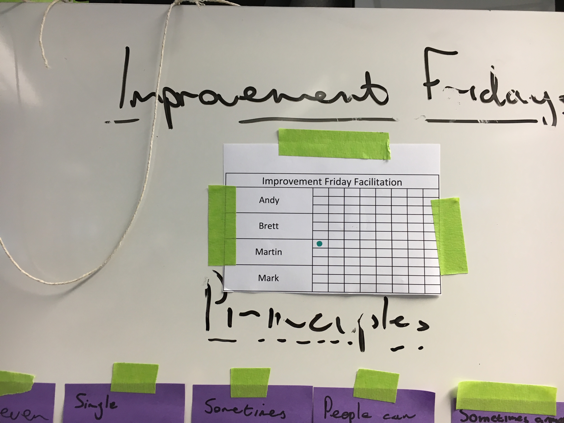 Improvement Fridays
Improvement Friday Facilitation
Andy
Brett
Martin
Mark
Principles
even
Single
Sometimes
People can
Sometimes